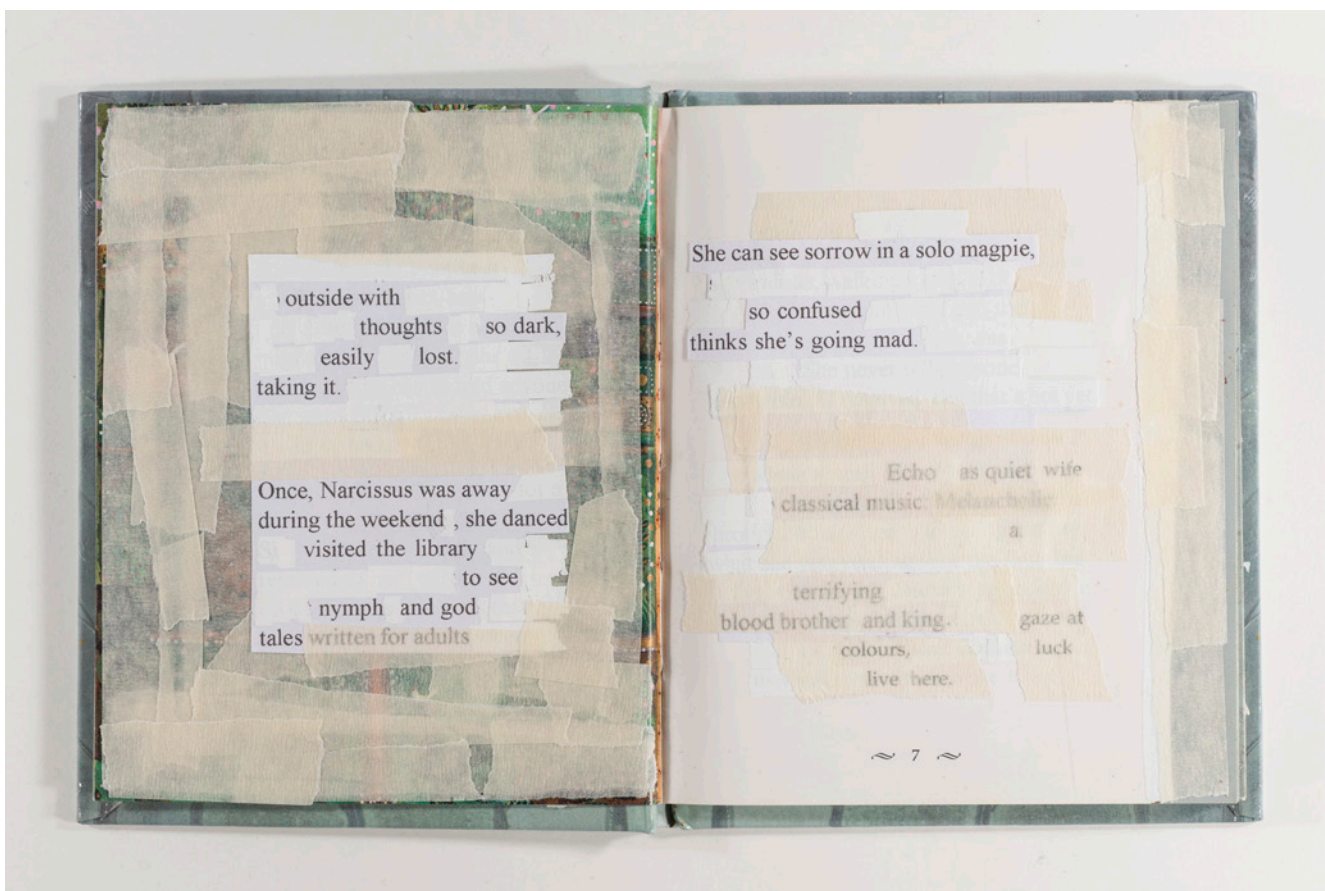 outside with
thoughts so dark,
easily lost.
taking it.
Once, Narcissus was away
during the weekend , she danced
visited the library
to see
nymph and god
tales written for adults
She can see sorrow in a solo magpie,
so confused
thinks she's going mad.
Echo as quiet wife
classical music. Melancholic
a
terrifying
blood brother and king. gaze at
colours, luck
live here.
7